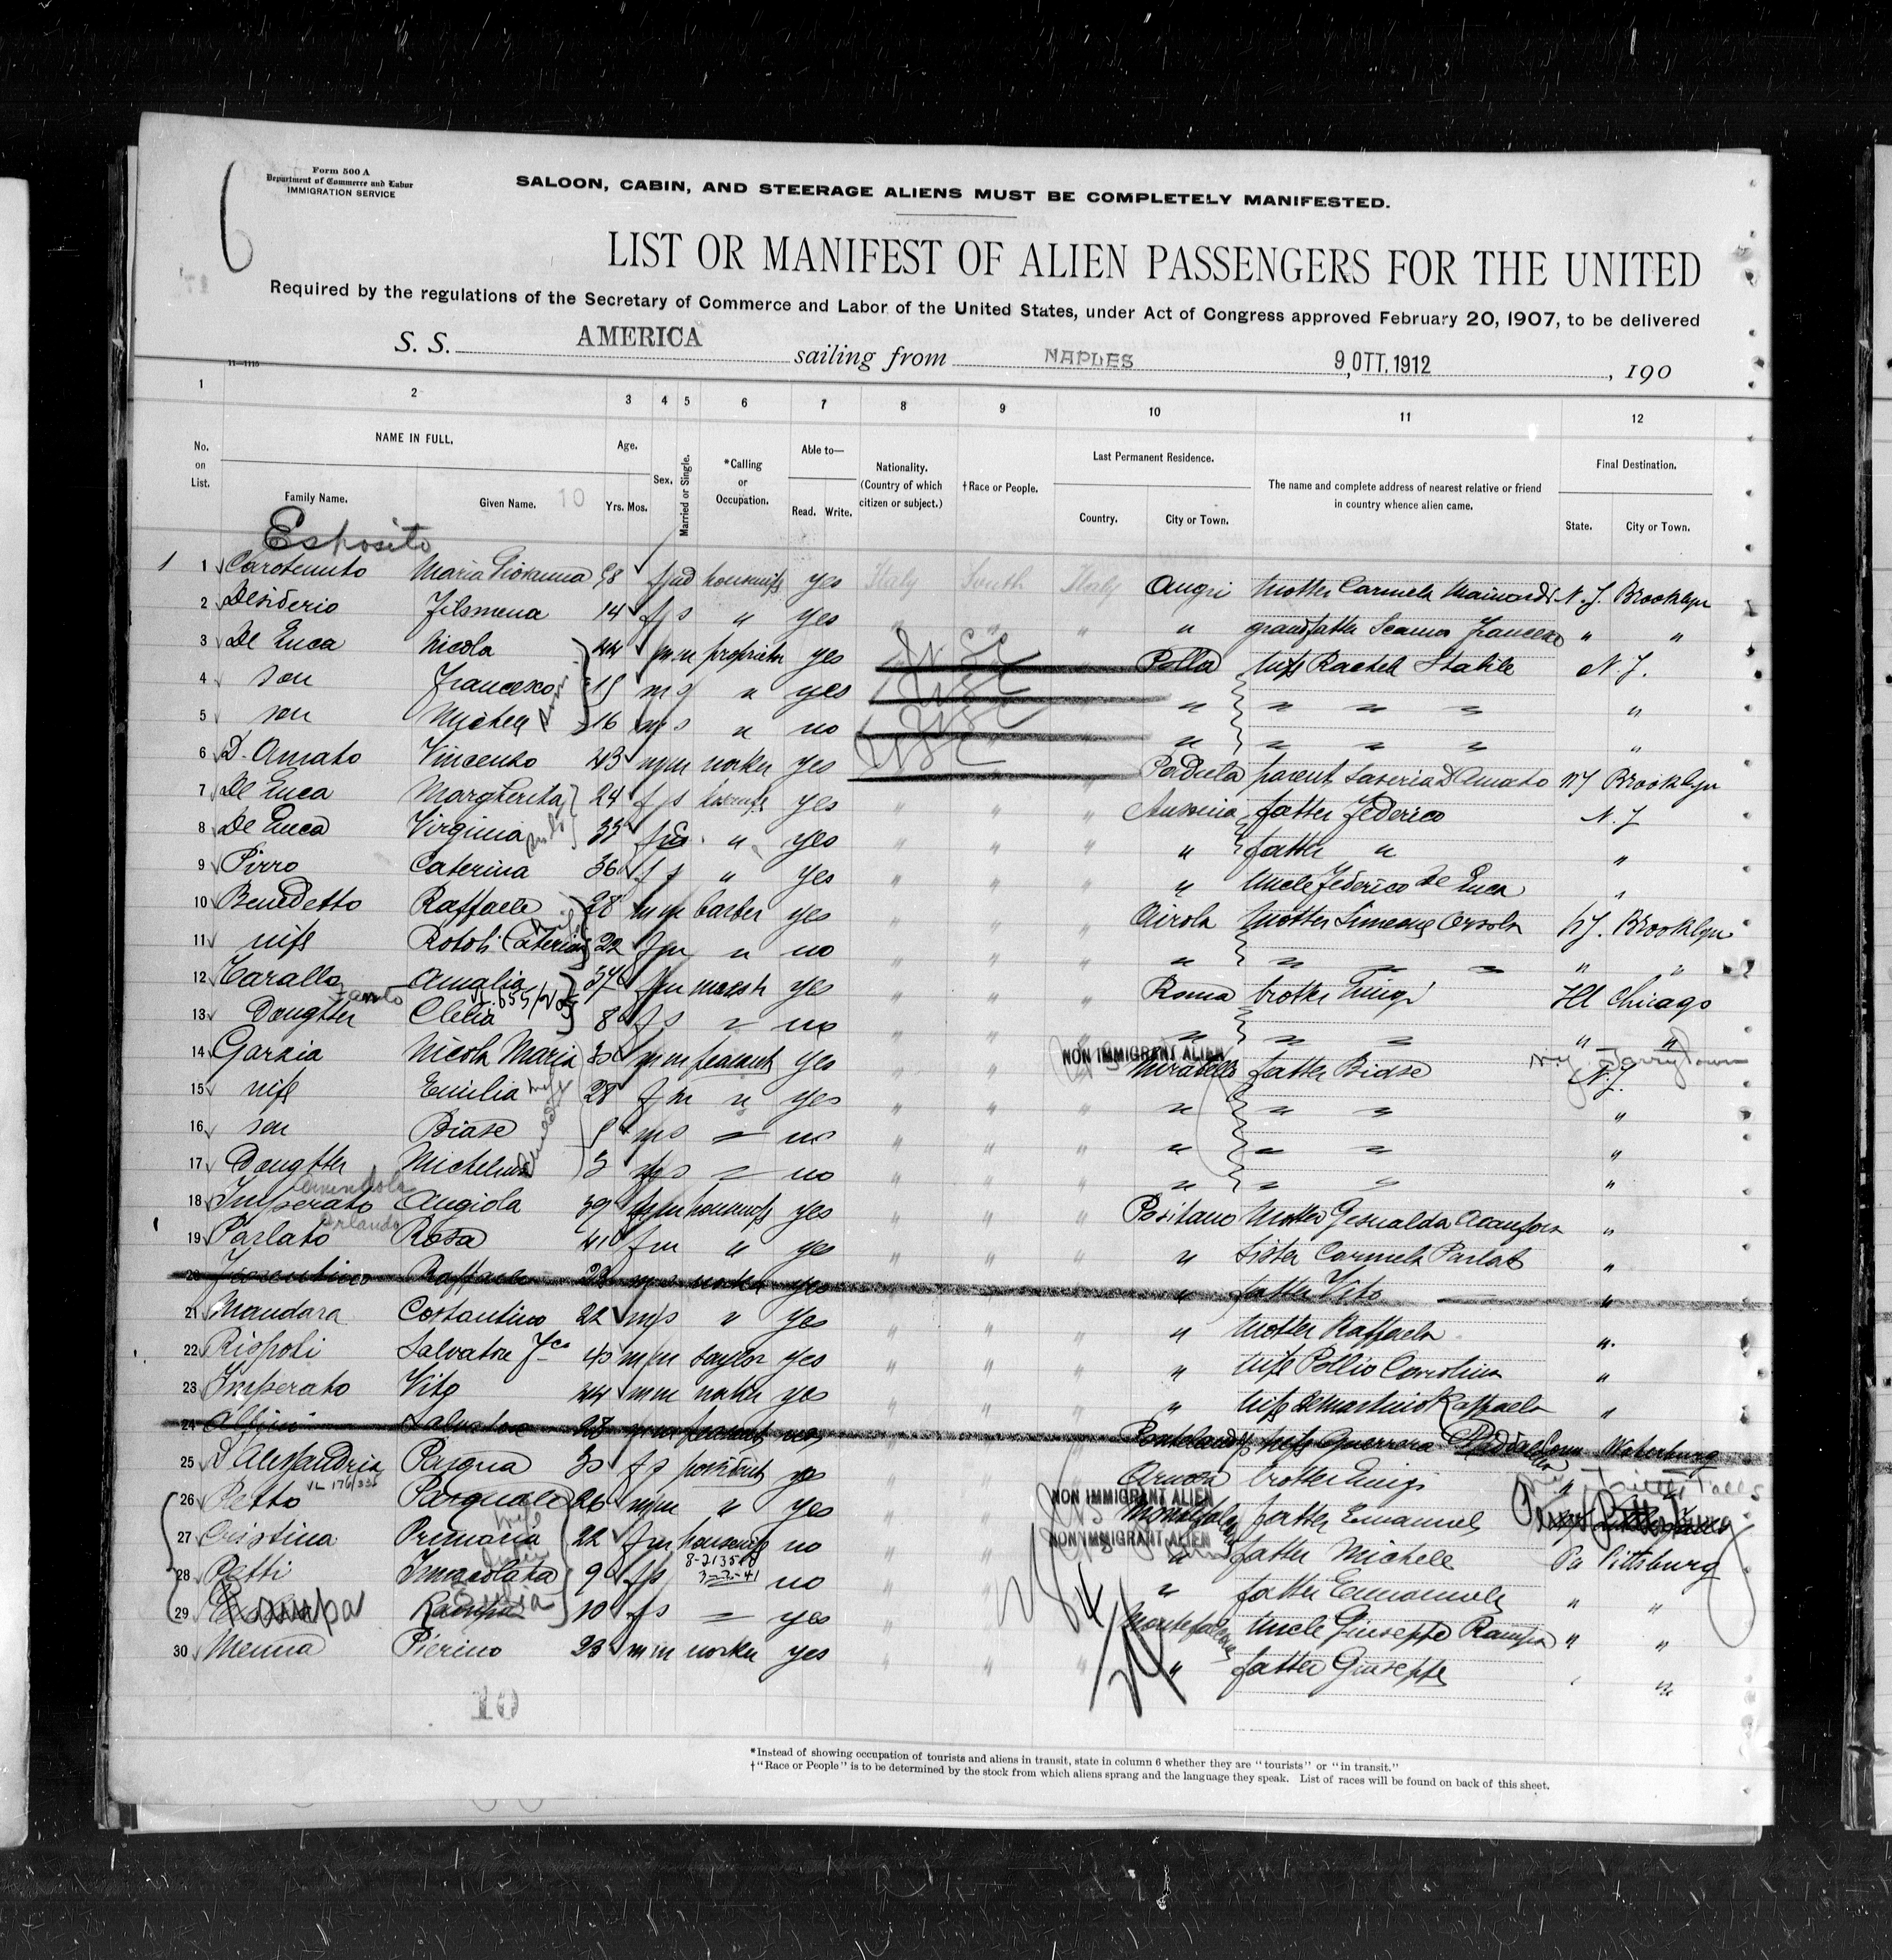 Form 500 A
Department of Commerce and Labor
IMMIGRATION SERVICE
SALOON, CABIN, AND STEERAGE ALIENS MUST BE COMPLETELY MANIFESTED.
6
LIST OR MANIFEST OF ALIEN PASSENGERS FOR THE UNITED
Required by the regulations of the Secretary of Commerce and Labor of the United States, under Act of Congress approved February 20, 1907, to be delivered
S. S. AMERICA sailing from NAPLES 9, OTT. 1912, 190
11—1115
1 2 3 4 5 6 7 8 9 10 11 12
No. on List.
NAME IN FULL.
Family Name. Given Name. 10
Age.
Yrs. Mos.
Sex.
Married or Single.
*Calling or Occupation.
Able to—
Read. Write.
Nationality. (Country of which citizen or subject.)
†Race or People.
Last Permanent Residence.
Country. City or Town.
The name and complete address of nearest relative or friend in country whence alien came.
Final Destination.
State. City or Town.
Esposito
1 1 Carotenuto Maria Giovanna housewife yes Italy South Italy Angri Mother Carmela Brooklyn
2 Desiderio Filomena 14 f s " yes " " " " grandfather Francesco " "
3 De Luca Nicola 44 m m proprietor yes Polla wife Rachela Stabile N. J.
4 son Francesco m s " yes " " " " "
5 son Michele 16 m s " no " " " " "
6 D. Amato Vincenzo 43 m m worker yes Padula parent D Amato Brooklyn
7 De Luca Margherita 24 f s yes " " " father Federico N. J.
8 De Luca Virginia 35 f " yes " " " " father " "
9 Pirro Caterina 36 f s " yes " " " " Uncle Federico de Luca "
10 Benedetto Raffaele 28 m m barber yes " " " Airola Mother Brooklyn
11 wife Rotoli Caterina 22 f m " no " " " " " " " " "
12 Tarallo Amalia f m yes " " " Roma brother Luigi Ill Chicago
13 Doughter Clelia 8 f s no " " " " " " " "
NON IMMIGRANT ALIEN
14 Garzia Nicola Maria m m peasant yes " " " Mirabella father Biase N. J. Tarrytown
15 wife Emilia 28 f m " yes " " " " " " "
16 son Biase m s no " " " " " " "
17 Doughter Michelina 3 no " " " " " " "
18 Imperato Angiola 39 f m housewife yes " " " Positano Mother Gesualda "
Orlando
19 Parlato Rosa 41 f m " yes " " " " sister Carmela Parlato "
20 Raffaele m s worker yes " " " " father Vito "
21 Mandara Costantino 22 m s " yes " " " " Mother Raffaela "
22 Rispoli Salvatore 40 m m taylor yes " " " " wife Pollio Carolina "
23 Imperato Vito 44 m m worker yes " " " " wife de Martino Raffaela "
24 Salvatore 28 m m peasant no " " " wife Guerrera Conn Waterburg
25 D'Alessandria Pasqua f s yes " " " brother Luigi "
VL 176/336
NON IMMIGRANT ALIEN
26 Petto Pasquale 26 m m " yes " " " father Emanuele
NON IMMIGRANT ALIEN
27 Cristina Primaria 22 f m housewife no " " " " father Michele Pa Pittsburg
28 Petti Immacolata 9 f s no " " " " father Emanuele " "
29 Rampa 10 f s yes " " " Montefalcone Uncle Giuseppe Rampa " "
30 Menna Pierino 23 m m worker yes " " " " father Giuseppe " "
10
*Instead of showing occupation of tourists and aliens in transit, state in column 6 whether they are "tourists" or "in transit."
†"Race or People" is to be determined by the stock from which aliens sprang and the language they speak. List of races will be found on back of this sheet.